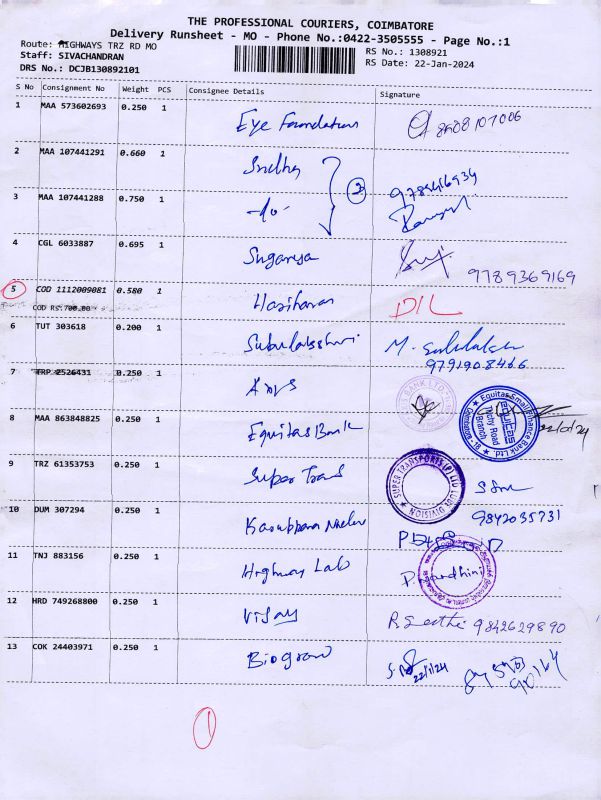 THE PROFESSIONAL COURIERS, COIMBATORE
Delivery Runsheet - MO - Phone No.:0422-3505555 - Page No.:1
Route: HIGHWAYS TRZ RD MO
RS No.: 1308921
Staff: SIVACHANDRAN
RS Date: 22-Jan-2024
DRS No.: DCJB130892101
S No Consignment No Weight PCS Consignee Details Signature
1 MAA 573602693 0.250 1 Eye Foundation 8508107006
2 MAA 107441291 0.660 1 9789416934
3 MAA 107441288 0.750 1 -do- 2
4 CGL 6033887 0.695 1 Suganya 9789369169
5 COD 1112009081 0.580 1 Hariharan D/L
COD RS:700.00
6 TUT 303618 0.200 1 Subulakshmi M. 9791908466
7 TRP 2526431 0.250 1
8 MAA 863848825 0.250 1 Equitas Bank Equitas Small Finance Bank Ltd. Trichy Road Branch 22/01/24
9 TRZ 61353753 0.250 1 Super Trans SUPER TRANSPORTS (P) LTD DIVISION
10 DUM 307294 0.250 1 9842035731
11 TNJ 883156 0.250 1 Highway Lab
12 HRD 749268800 0.250 1 Vijay 9842629890
13 COK 24403971 0.250 1 22/1/24
1